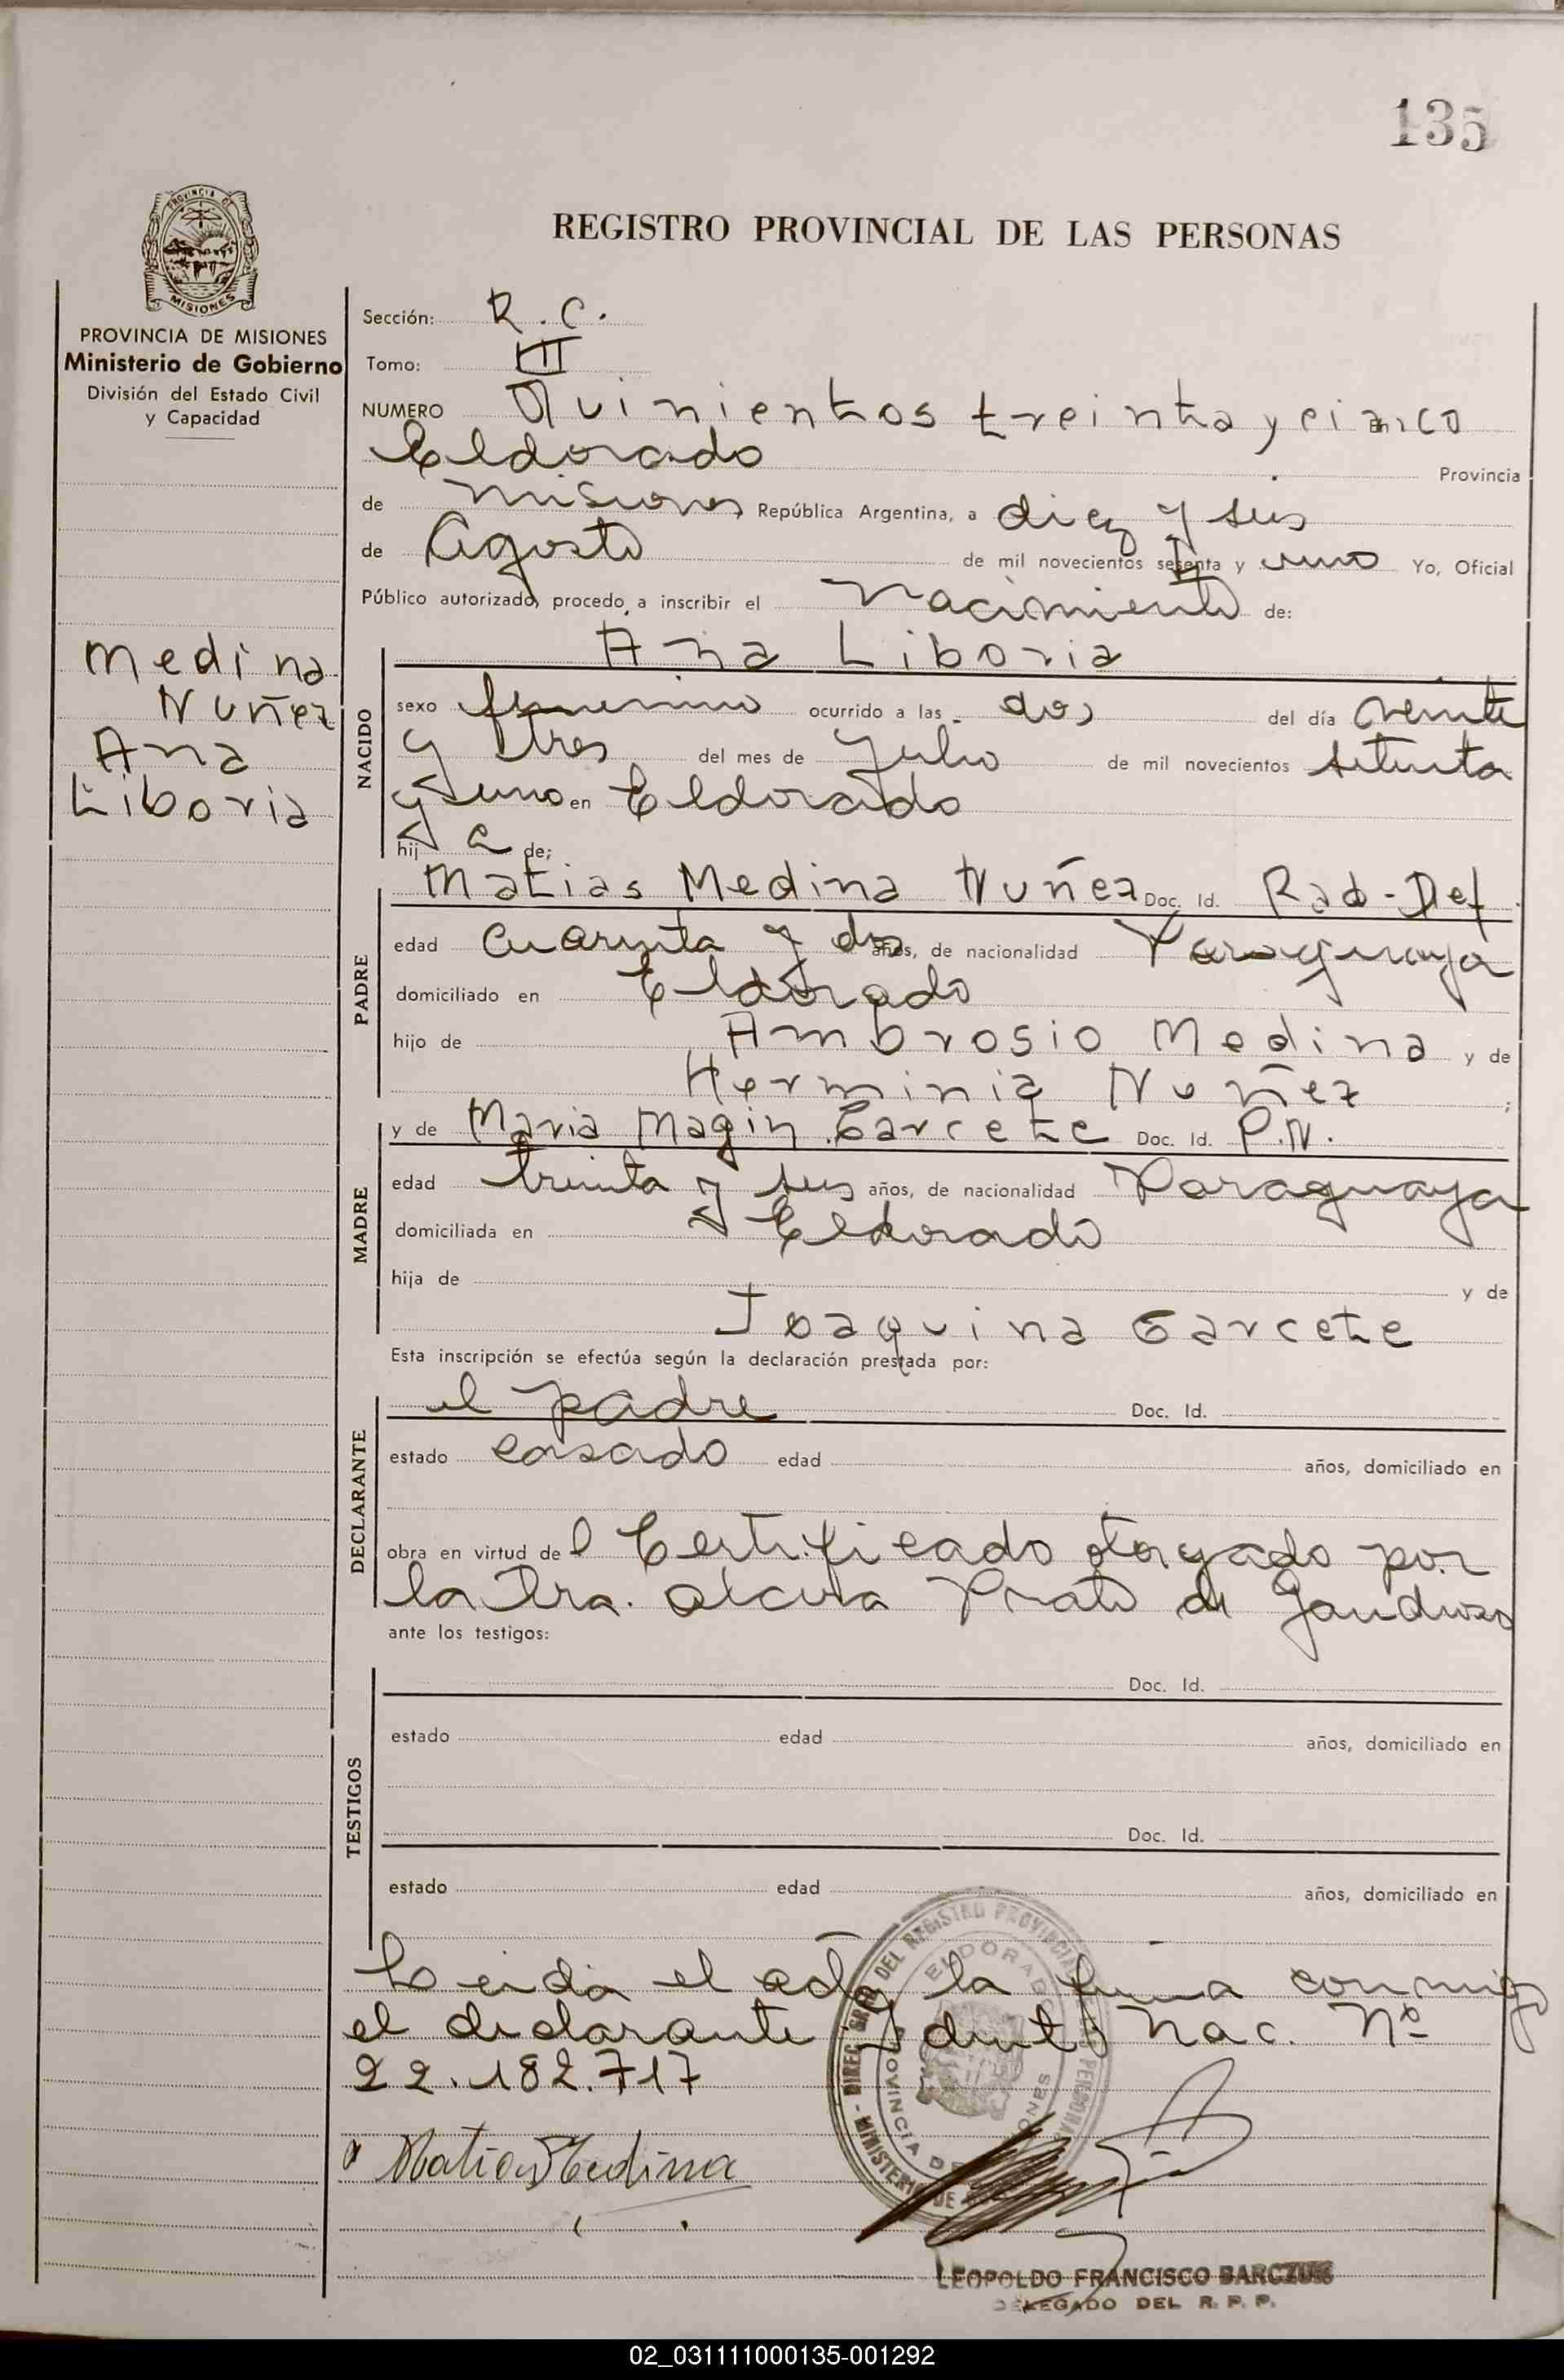 135
PROVINCIA DE
MISIONES
REGISTRO PROVINCIAL DE LAS PERSONAS
PROVINCIA DE MISIONES
Ministerio de Gobierno
División del Estado Civil
y Capacidad
Medina
Nuñez
Ana
Liboria
Sección: R.C.
Tomo: III
NUMERO Quinientos treinta y cinco
Eldorado Provincia
de Misiones República Argentina, a diez y seis
de Agosto de mil novecientos sesenta y uno Yo, Oficial
Público autorizado, procedo a inscribir el nacimiento de:
Ana Liboria
NACIDO
sexo femenino ocurrido a las dos del día veinte
y tres del mes de Julio de mil novecientos setenta
y uno en Eldorado
hij a de;
PADRE
Matias Medina Nuñez Doc. Id. Rad-Def
edad cuarenta y dos años, de nacionalidad Paraguaya
domiciliado en Eldorado
hijo de Ambrosio Medina y de
Herminia Nuñez ;
MADRE
y de Maria Magin Garcete Doc. Id. P.N.
edad treinta y seis años, de nacionalidad Paraguaya
domiciliada en Eldorado
hija de y de
Joaquina Garcete
Esta inscripción se efectúa según la declaración prestada por:
DECLARANTE
el padre Doc. Id.
estado casado edad años, domiciliado en
obra en virtud del Certificado otorgado por
la Dra. Prato de
ante los testigos:
TESTIGOS
Doc. Id.
estado edad años, domiciliado en
Doc. Id.
estado edad años, domiciliado en
Leida el acta la firma conmigo
el declarante Ident. Nac. Nº
22.182.717
Matias Medina
DIREC. GRAL. DEL REGISTRO PROVINCIAL PERSONAS
ELDORADO
PROVINCIA DE
MINISTERIO DE
LEOPOLDO FRANCISCO
DELEGADO DEL R. P. P.
02_031111000135-001292